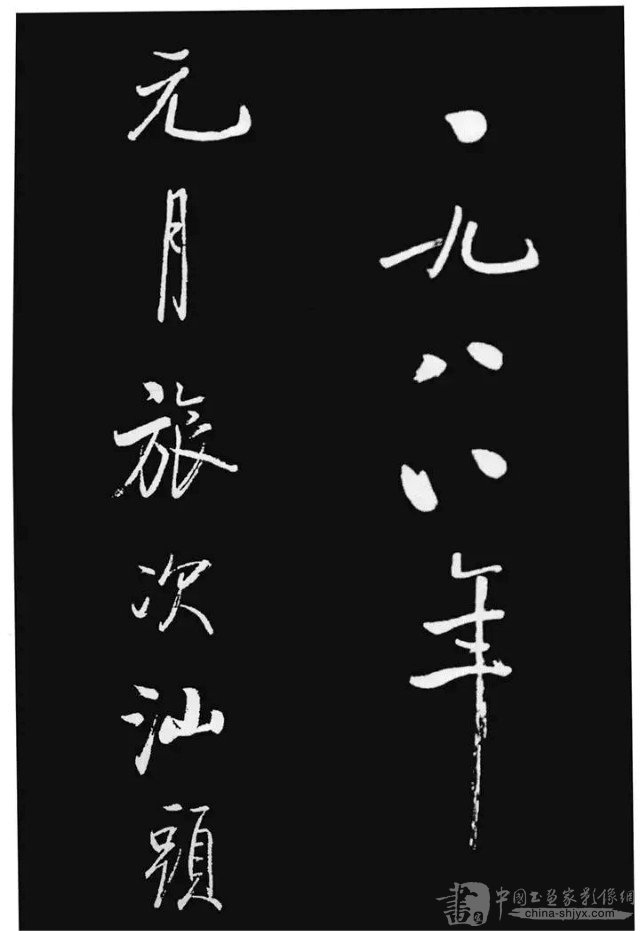 一九八八年
元月旅次汕頭
書 中国书画家影像網
china-shjyx.com